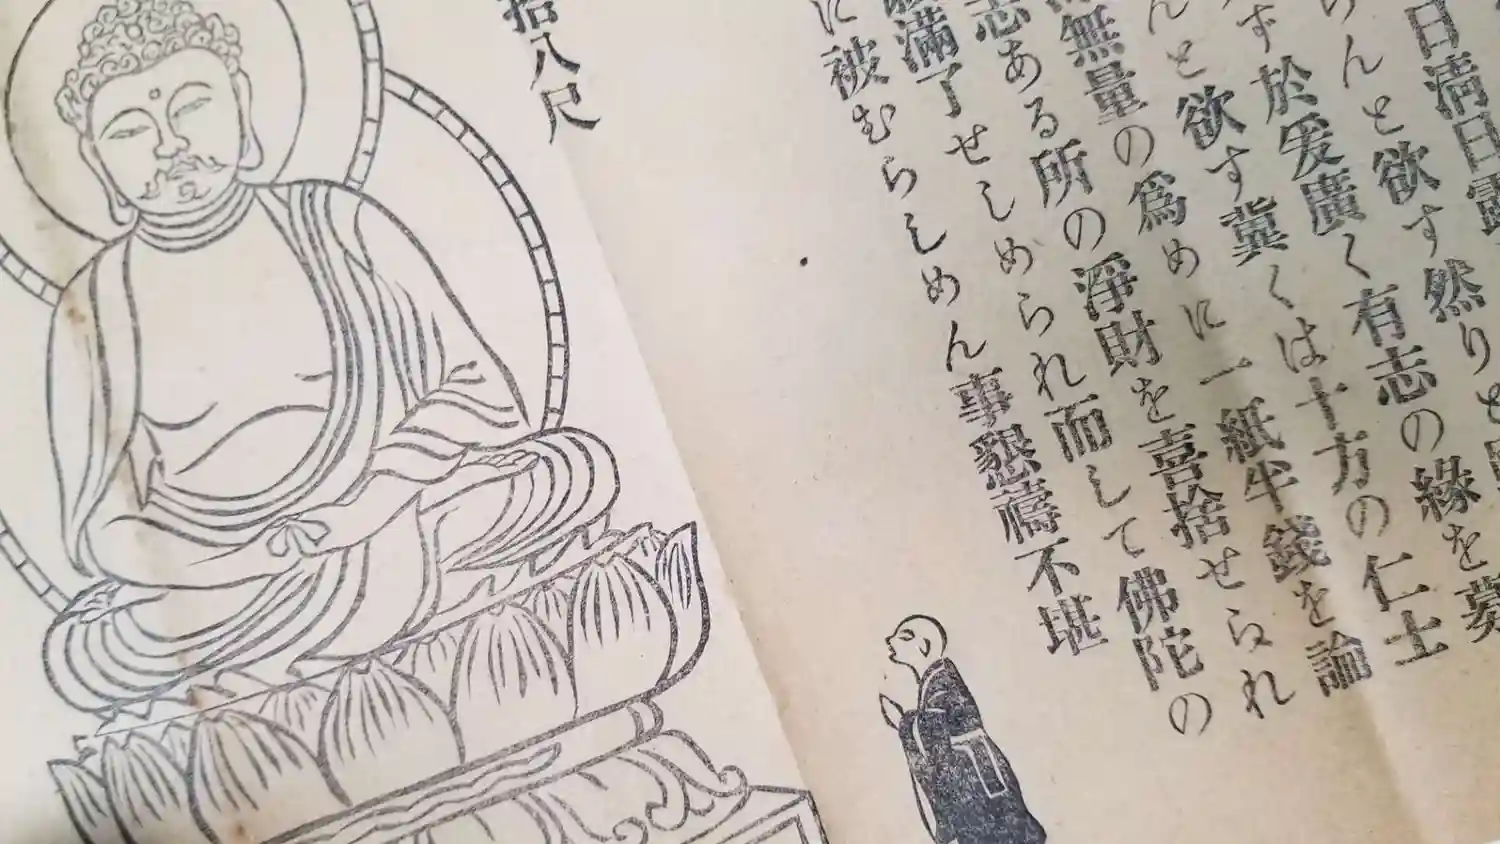 日淸日露
らんと欲す然りと
ず於爰廣く有志の緣を募
んと欲す冀くは十方の仁士
無量の爲めに一紙半錢を論
志ある所の淨財を喜捨せられ
滿了せしめられ而して佛陀の
に被むらしめん事懇禱不堪
拾八尺